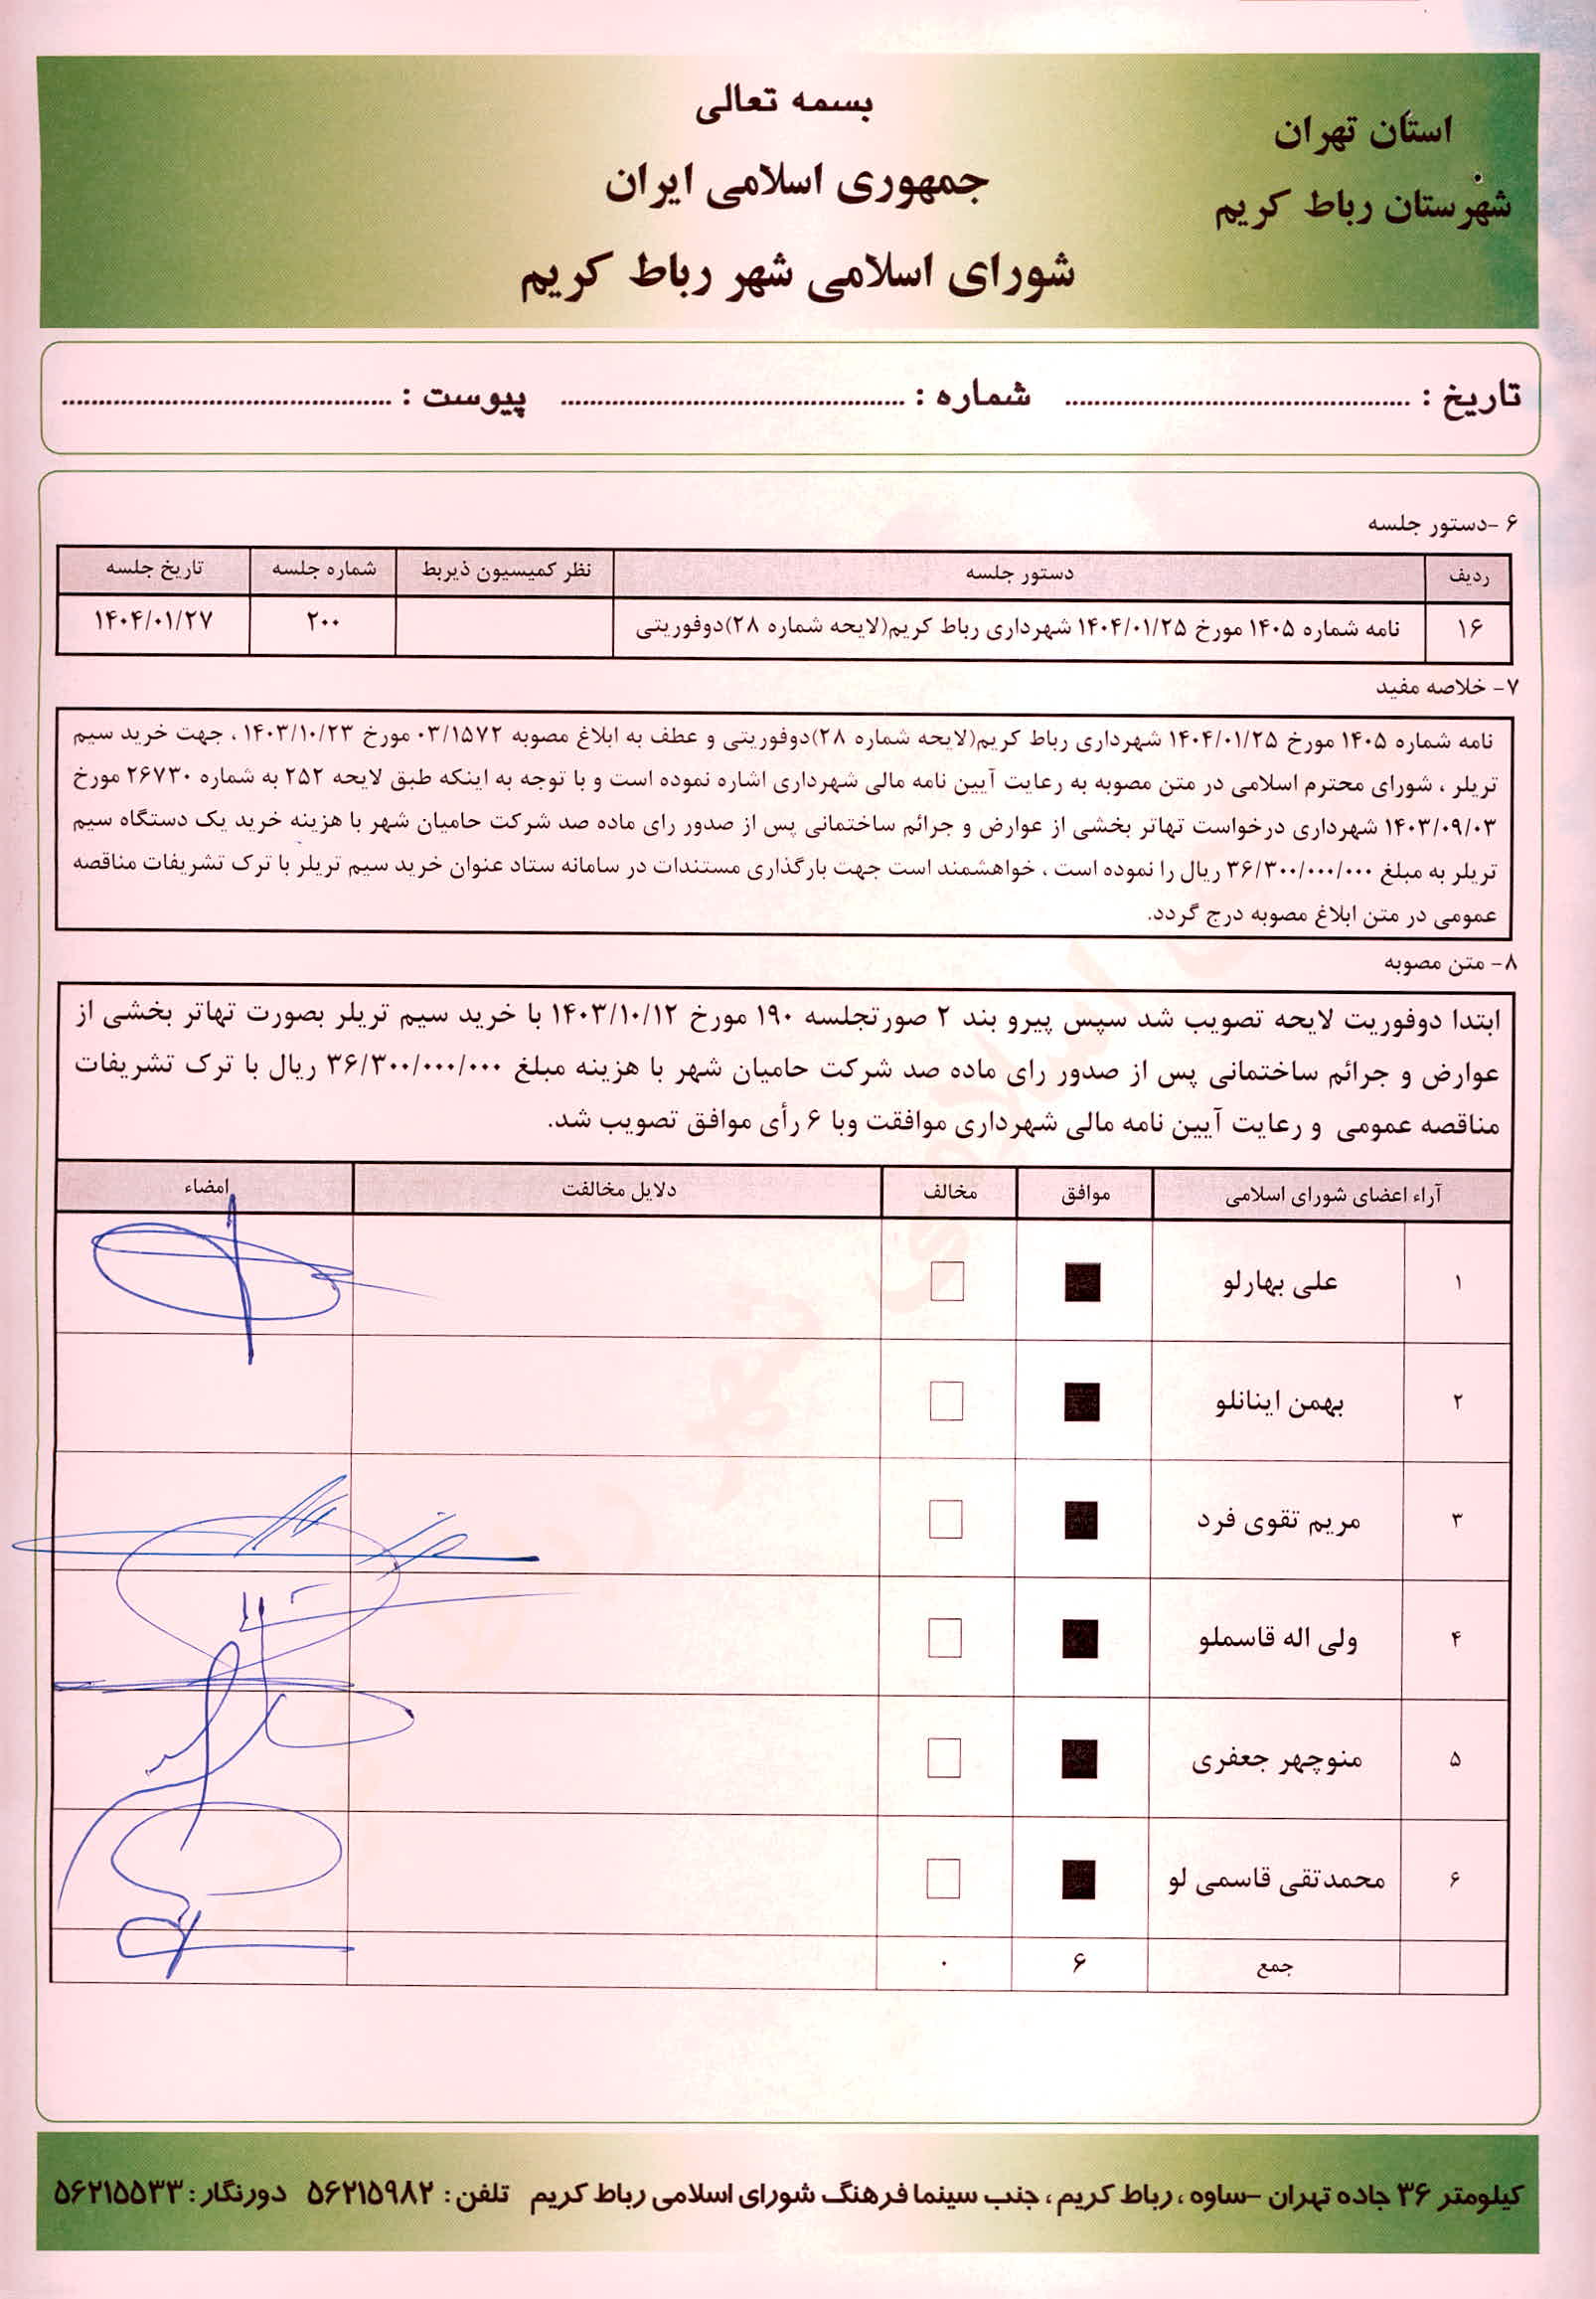 بسمه تعالی
استان تهران
جمهوری اسلامی ایران
شهرستان رباط کریم
شورای اسلامی شهر رباط کریم
تاریخ : شماره : پیوست :
۶ -دستور جلسه
ردیف دستور جلسه نظر کمیسیون ذیربط شماره جلسه تاریخ جلسه
۱۶ نامه شماره ۱۴۰۵ مورخ ۱۴۰۴/۰۱/۲۵ شهرداری رباط کریم(لایحه شماره ۲۸)دوفوریتی ۲۰۰ ۱۴۰۴/۰۱/۲۷
۷- خلاصه مفید
نامه شماره ۱۴۰۵ مورخ ۱۴۰۴/۰۱/۲۵ شهرداری رباط کریم(لایحه شماره ۲۸)دوفوریتی و عطف به ابلاغ مصوبه ۰۳/۱۵۷۲ مورخ ۱۴۰۳/۱۰/۲۳ ، جهت خرید سیم
تریلر ، شورای محترم اسلامی در متن مصوبه به رعایت آیین نامه مالی شهرداری اشاره نموده است و با توجه به اینکه طبق لایحه ۲۵۲ به شماره ۲۶۷۳۰ مورخ
۱۴۰۳/۰۹/۰۳ شهرداری درخواست تهاتر بخشی از عوارض و جرائم ساختمانی پس از صدور رای ماده صد شرکت حامیان شهر با هزینه خرید یک دستگاه سیم
تریلر به مبلغ ۳۶/۳۰۰/۰۰۰/۰۰۰ ریال را نموده است ، خواهشمند است جهت بارگذاری مستندات در سامانه ستاد عنوان خرید سیم تریلر با ترک تشریفات مناقصه
عمومی در متن ابلاغ مصوبه درج گردد.
۸- متن مصوبه
ابتدا دوفوریت لایحه تصویب شد سپس پیرو بند ۲ صورتجلسه ۱۹۰ مورخ ۱۴۰۳/۱۰/۱۲ با خرید سیم تریلر بصورت تهاتر بخشی از
عوارض و جرائم ساختمانی پس از صدور رای ماده صد شرکت حامیان شهر با هزینه مبلغ ۳۶/۳۰۰/۰۰۰/۰۰۰ ریال با ترک تشریفات
مناقصه عمومی و رعایت آیین نامه مالی شهرداری موافقت وبا ۶ رأی موافق تصویب شد.
آراء اعضای شورای اسلامی موافق مخالف دلایل مخالفت امضاء
۱ علی بهارلو
۲ بهمن اینانلو
۳ مریم تقوی فرد
۴ ولی اله قاسملو
۵ منوچهر جعفری
۶ محمدتقی قاسمی لو
جمع ۶ ۰
کیلومتر ۳۶ جاده تهران -ساوه ، رباط کریم ، جنب سینما فرهنگ شورای اسلامی رباط کریم تلفن : ۵۶۲۱۵۹۸۲ دورنگار : ۵۶۲۱۵۵۳۳